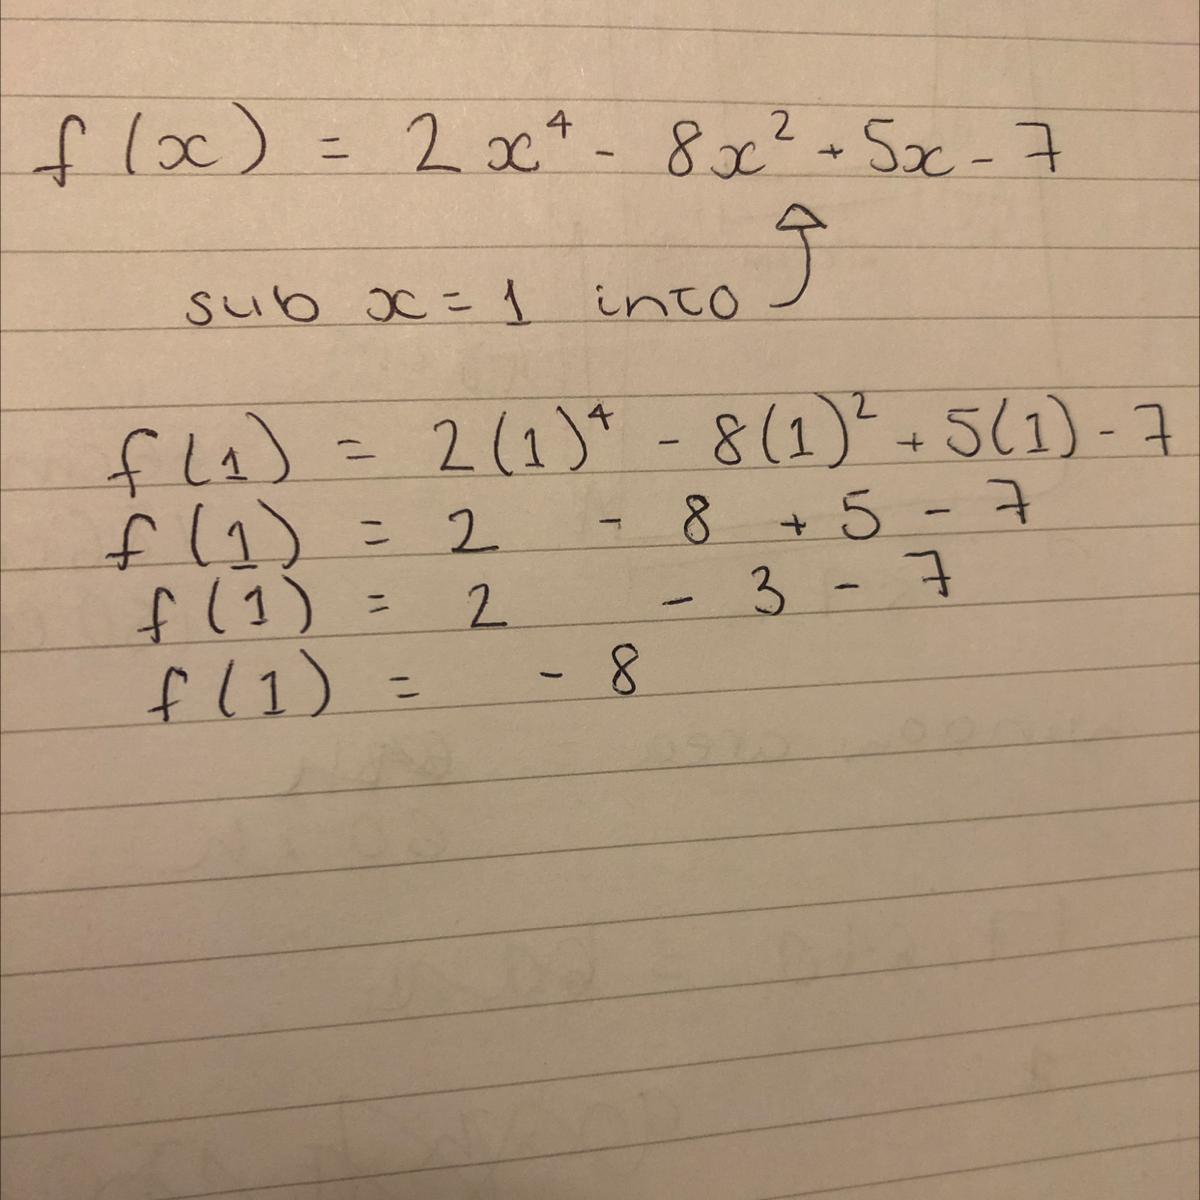 f(x) = 2x⁴ - 8x² + 5x - 7
sub x = 1 into
f(1) = 2(1)⁴ - 8(1)² + 5(1) - 7
f(1) = 2 - 8 + 5 - 7
f(1) = 2 - 3 - 7
f(1) = - 8